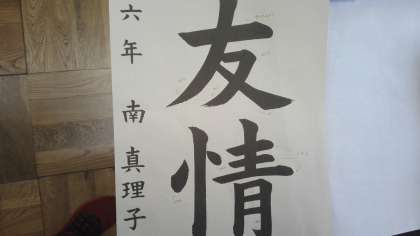 友情
六年 南 真理子